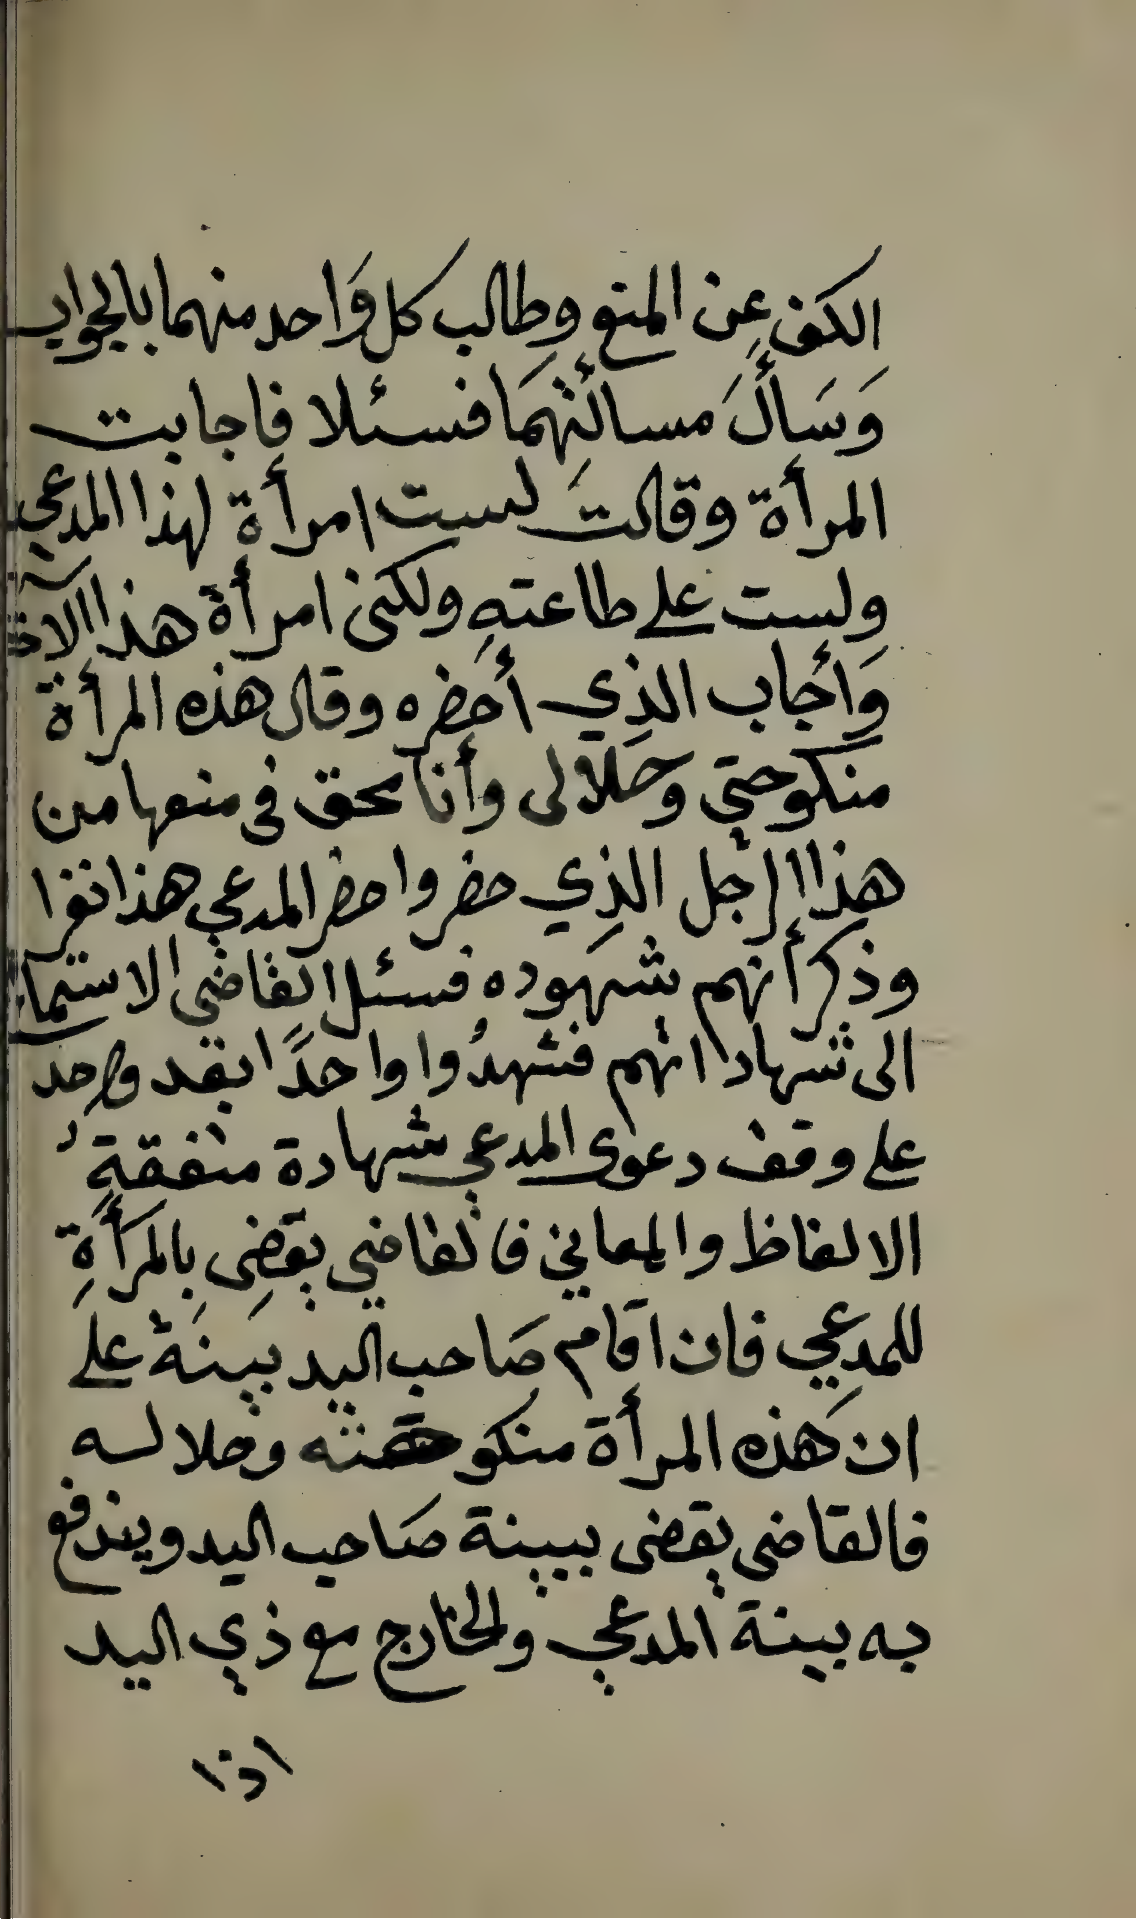 الكف عن المنع وطالب كل واحد منهما بالجواب
وَسَأَلَ مسالتهما فسئلا فاجابت
المرأة وقالت لست امرأة لهذا المدعي
ولست على طاعته ولكني امرأة هذا الآخر
وَأجاب الذِي أحضره وقال هذه المرأة
منكوحتي وحلالى وأنا محق فى منعها من
هذا الرجل الذِي حضر واحضر المدعي هذا نفرا
وذكر أنهم شهوده فسئل القاضى الاستماع
الى شهاداتهم فشهدُوا واحدًا بعد واحد
على وفق دعوى المدعي شهادة متفقةِ
الالفاظ والمعاني فالقاضي يقضِى بالمَرأةِ
للمدعِي فان اقام صَاحب اليد بينَة على
ان هذه المرأة منكوحته وحلاله
فالقاضى يقضى ببينة صاحب اليد ويندفع
به بينة المدعي والخارج مع ذي اليد
اذا